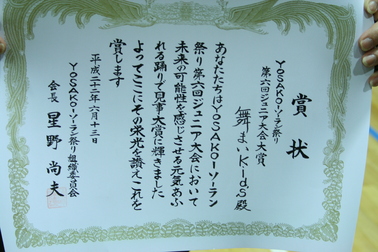 賞状
YOSAKOIソーラン祭り
第六回ジュニア大会大賞
舞よいKids殿
あなたたちはYOSAKOIソーラン
祭り第六回ジュニア大会において
未来の可能性を感じさせる元気あふ
れる踊りで見事大賞に輝きました
よってここにその栄光を讃えこれを
賞します
平成二十一年六月十三日
YOSAKOIソーラン祭り組織委員会
会長 星野尚夫